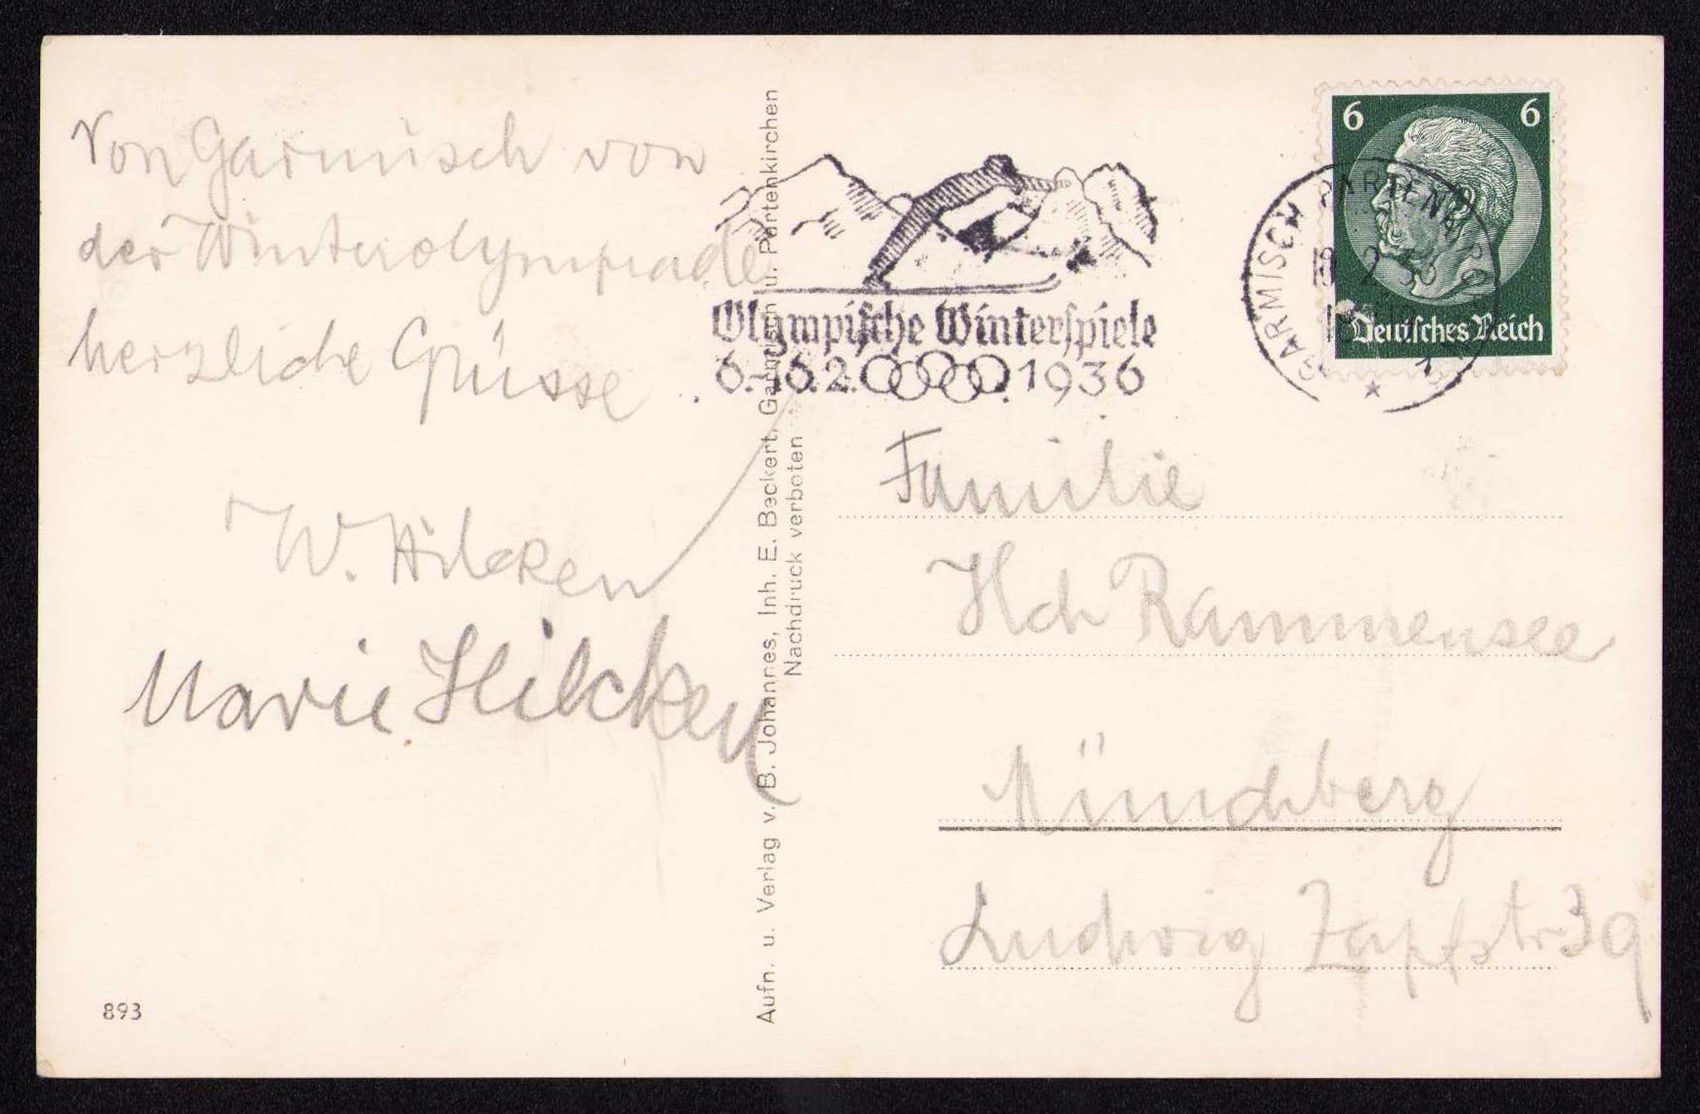 Von Garmisch von
der Winterolympiade
herzliche Grüsse
W. Hilcken
Marie Hilcken
893
Aufn. u. Verlag v. B. Johannes, Inh. E. Beckert, Garmisch u. Partenkirchen
Nachdruck verboten
Olympische Winterspiele
6.-16.2. 1936
GARMISCH PARTENKIRCHEN
2.36
6 6
Deutsches Reich
Familie
Hch Rammensee
Münchberg
Ludwig Zapfstr 39